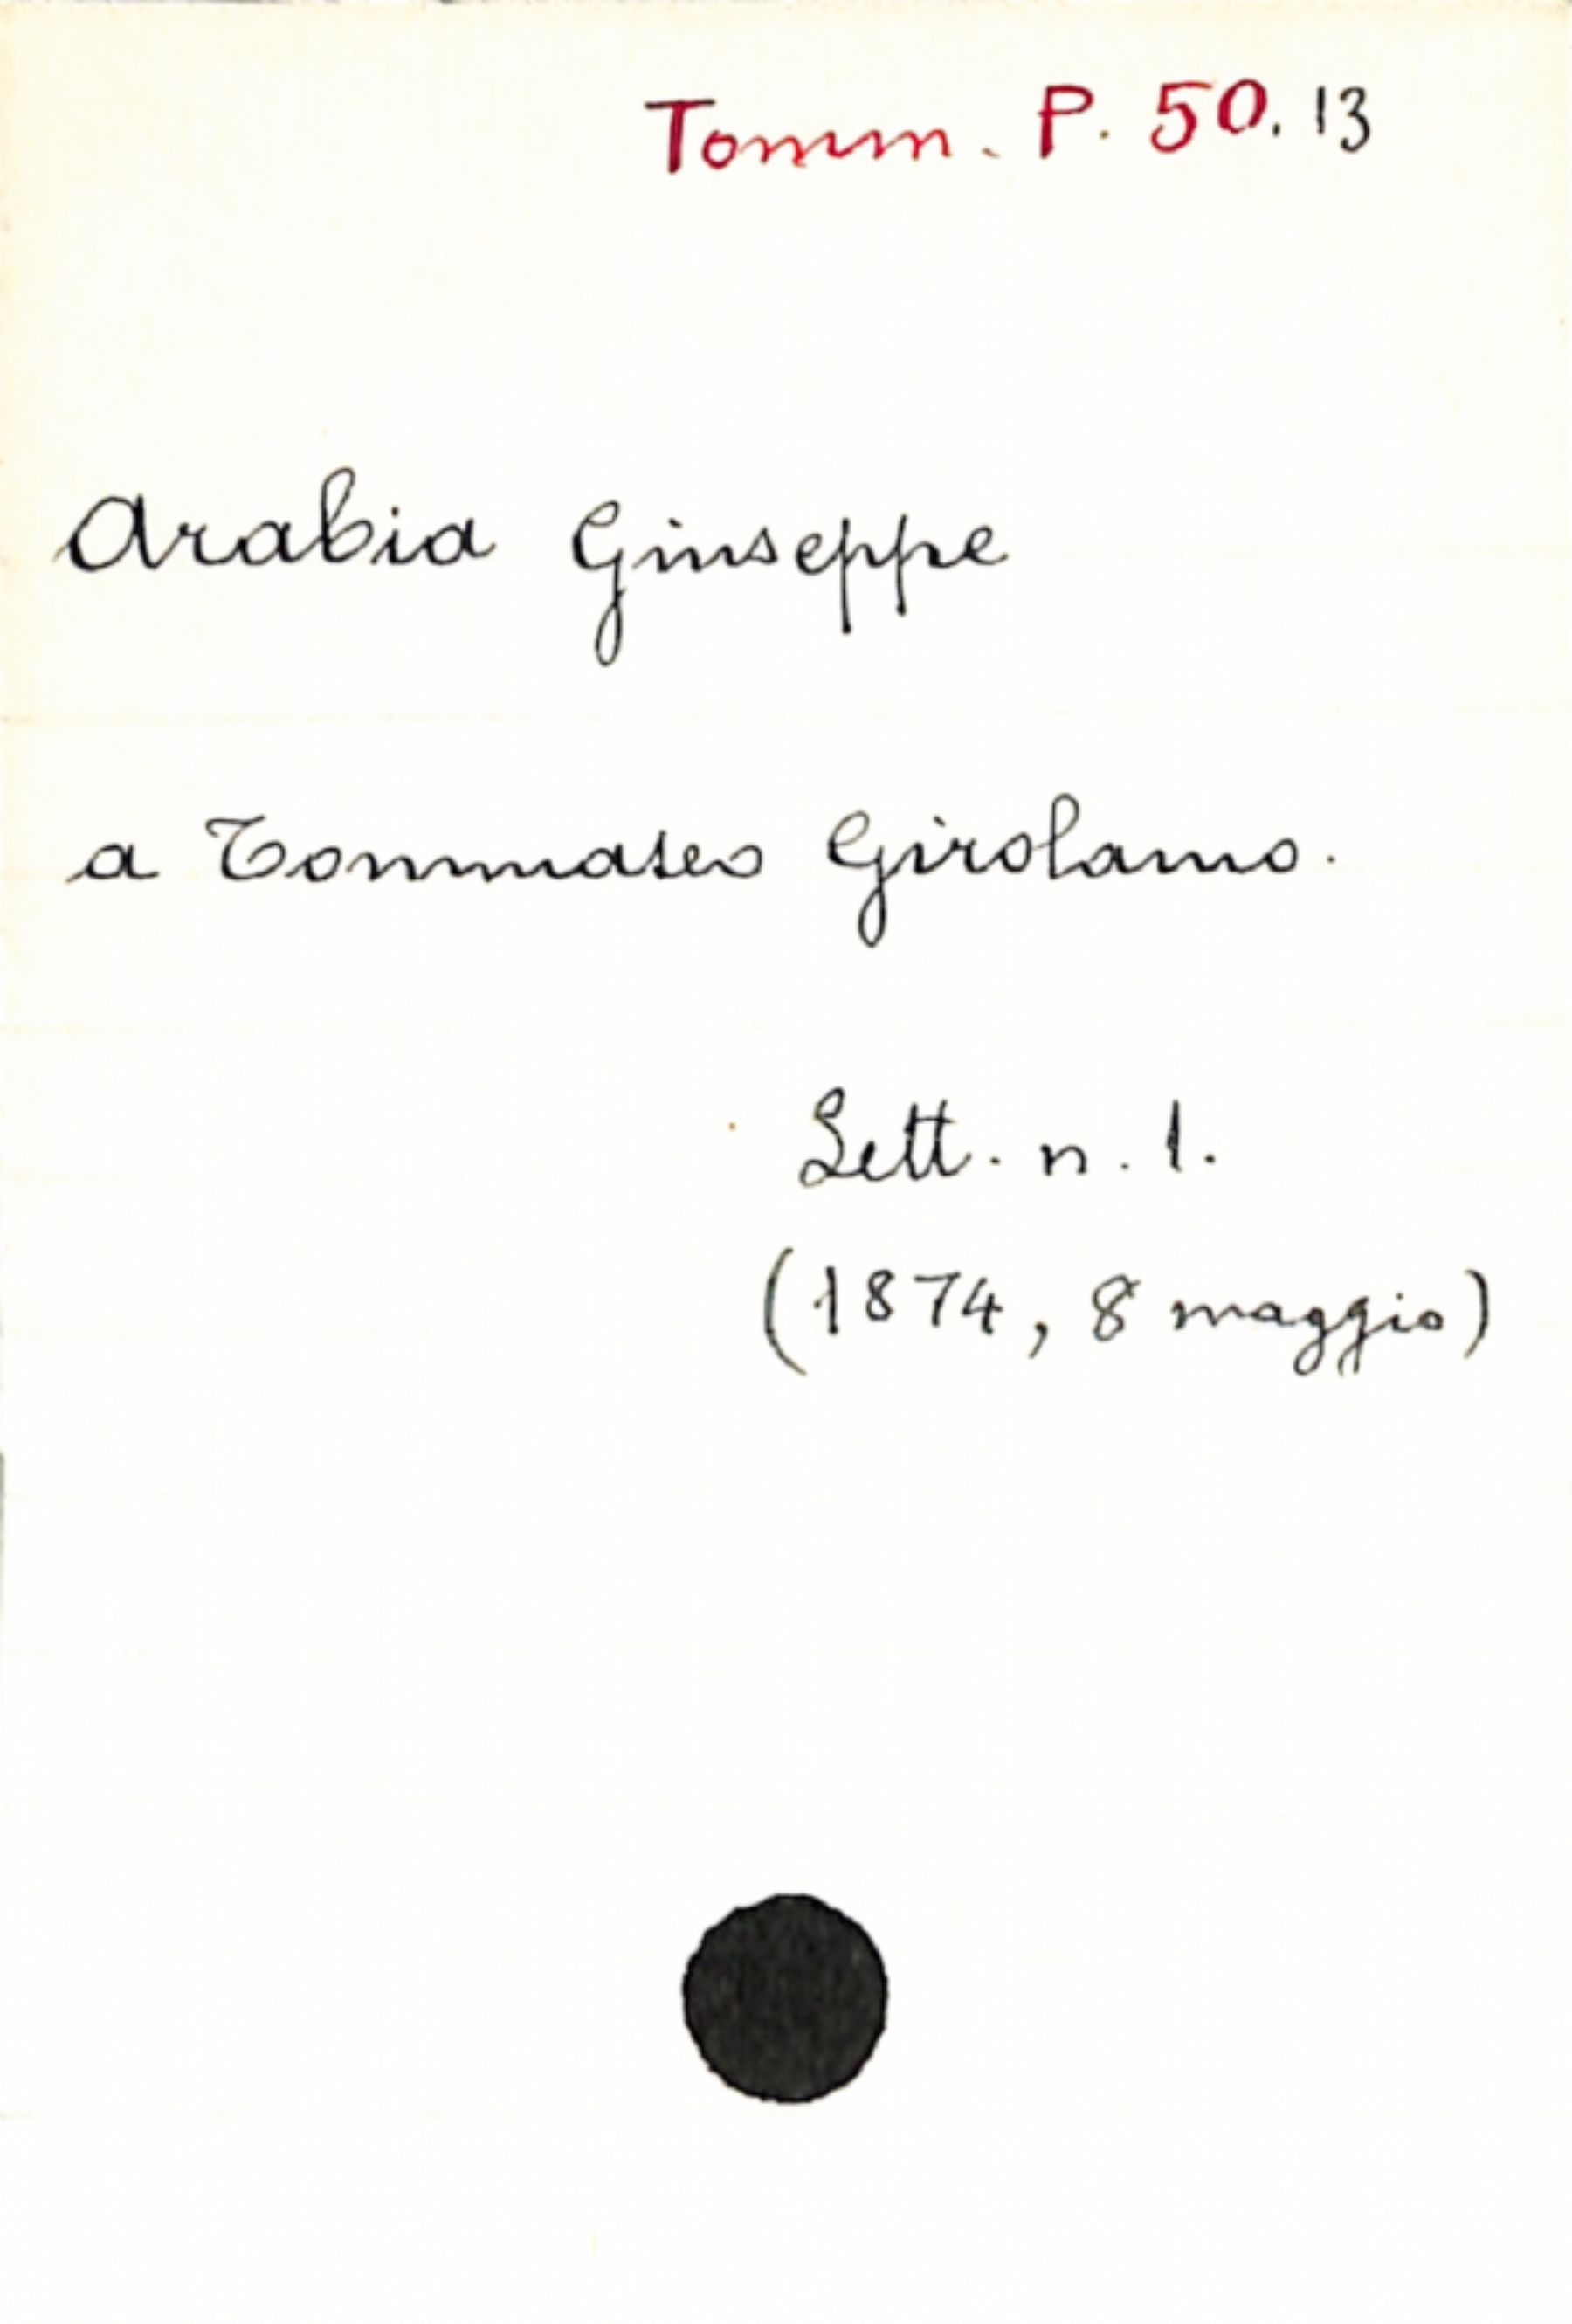 Tomm. P. 50. 13
Arabia Giuseppe
a Tommaseo Girolamo.
Lett. n. 1.
(1874, 8 maggio)